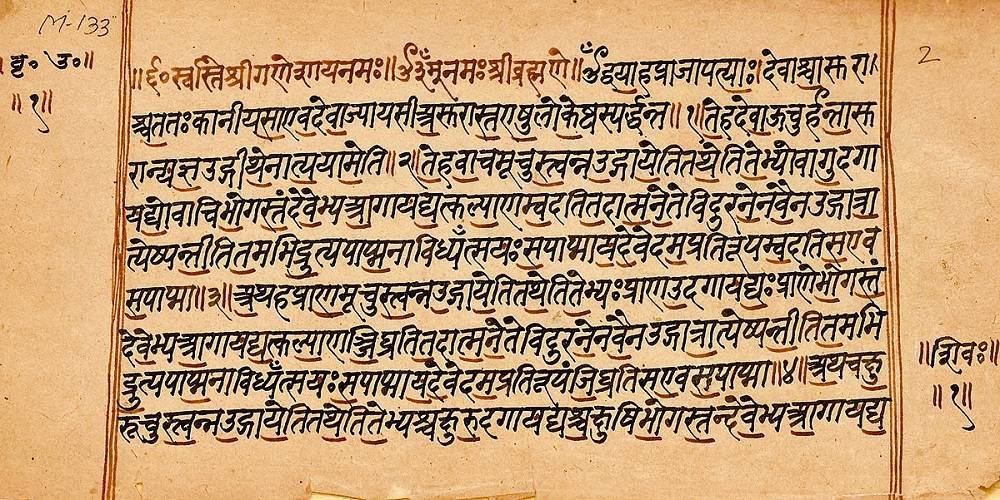 M-133
बृ॰ उ॰॥
॥१॥
2
॥ ६॰ स्वस्ति श्रीगणेशायनमः॥ ॐ नमः श्रीब्रह्मणे॥ ॐ द्वयाहप्राजापत्याः।देवाश्चासुरा।
श्चततःकानीयसाएवदेवाज्यायसाअसुरास्तएषुलोकेष्वस्पर्द्धन्त॥१॥तेहदेवाऊचुर्हन्तासु
रान्यज्ञउद्गीथेनात्ययामेति॥२॥तेहवाचमूचुस्त्वन्नउद्गायेतितथेतितेभ्योवागुदगा
यद्योवाचिभोगस्तंदेवेभ्यआगायद्यत्कल्याणम्वदतितदात्मनेतेविदुरनेनवैनउद्गात्रा
त्येष्यन्तीतितमभिद्रुत्यपाप्मनाविध्यँत्सयःसपाप्मायदेवेदमप्रतिरूपम्वदतिसएव
सपाप्मा॥३॥अथहप्राणमूचुस्त्वन्नउद्गायेतितथेतितेभ्यःप्राणउदगायद्यःप्राणेभोगस्तं
देवेभ्यआगायद्यत्कल्याणञ्जिघ्रतितदात्मनेतेविदुरनेनवैनउद्गात्रात्येष्यन्तीतितमभि
द्रुत्यपाप्मनाविध्यँत्सयःसपाप्मायदेवेदमप्रतिरूपंजिघ्रतिसएवसपाप्मा॥४॥अथचक्षु
रूचुस्त्वन्नउद्गायेतितथेतितेभ्यश्चक्षुरुदगायद्यश्चक्षुषिभोगस्तन्देवेभ्यआगायद्य
॥शिवः॥
॥१॥